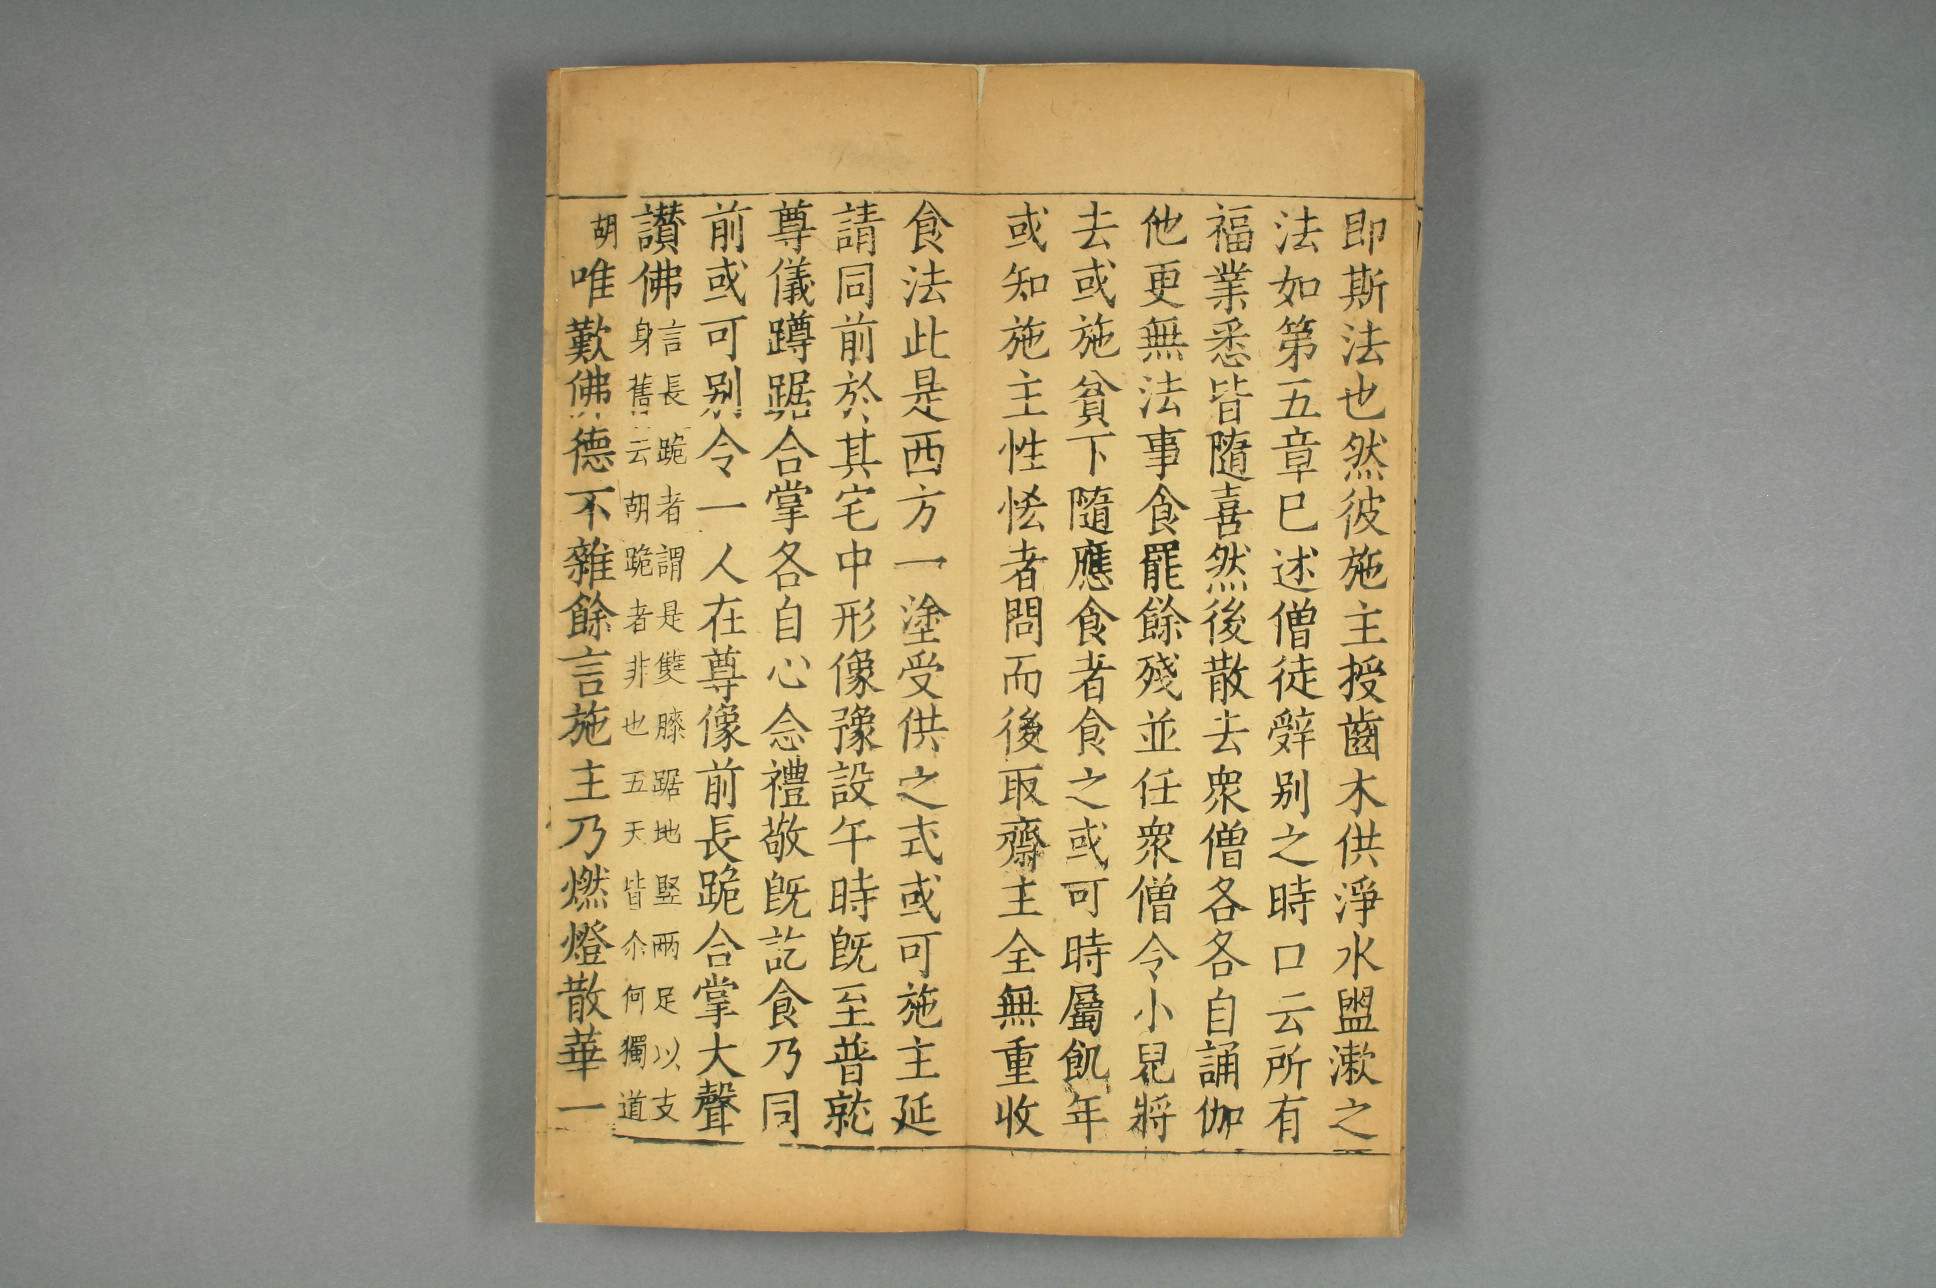 即斯法也然彼施主授齒木供淨水盥漱之
法如第五章已述僧徒辤别之時口云所有
福業悉皆隨喜然後散去衆僧各各自誦伽
他更無法事食罷餘殘並任衆僧令小兒將
去或施貧下隨應食者食之或可時屬飢年
或知施主性恡者問而後取齋主全無重收
食法此是西方一塗受供之式或可施主延
請同前於其宅中形像豫設午時既至普就
尊儀蹲踞合掌各自心念禮敬既訖食乃同
前或可别令一人在尊像前長跪合掌大聲
讃佛言長跪者謂是雙膝踞地竪兩足以支
身舊云胡跪者非也五天皆尒何獨道
胡唯歎佛德不雜餘言施主乃燃燈散華一